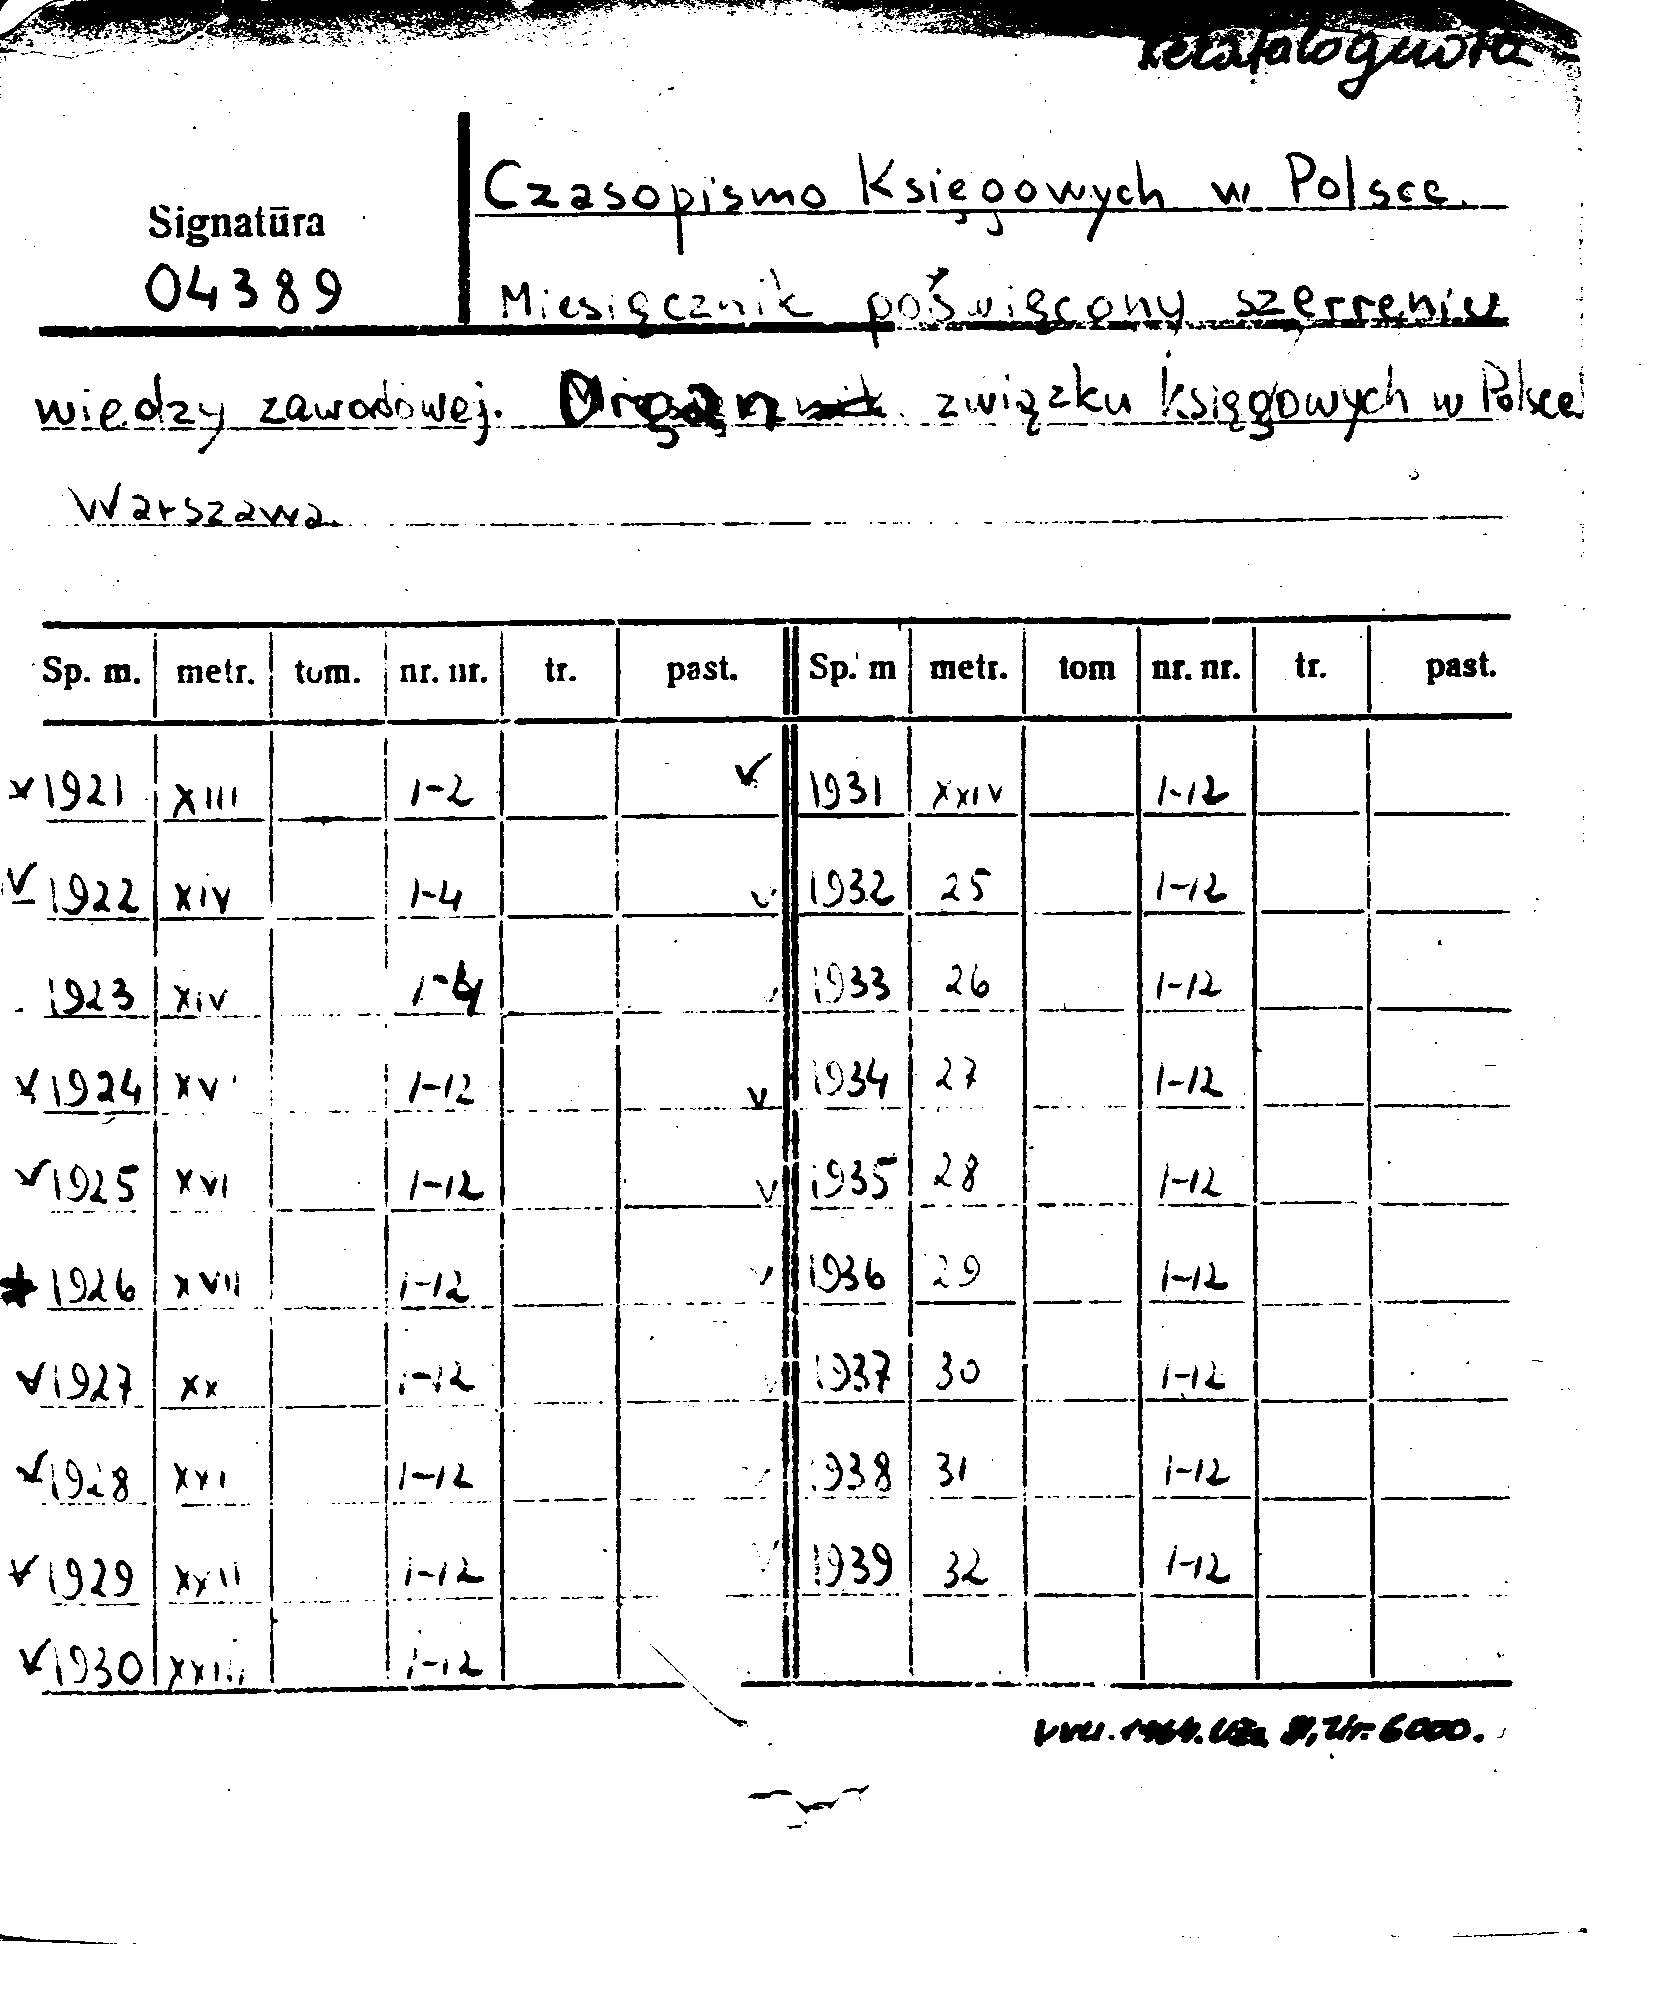 rekataloguota
Signatūra
04389
Czasopismo Księgowych w Polsce.
Miesięcznik poświęcony szerzeniu
wiedzy zawodowej. Organ związku księgowych w Polsce
Warszawa.
Sp. m. metr. tom. nr. nr. tr. past. Sp. m metr. tom nr. nr. tr. past.
v 1921 XIII 1-2 v 1931 XXIV 1-12
v 1922 XIV 1-4 v 1932 25 1-12
1923 XIV 1-4 v 1933 26 1-12
v 1924 XV 1-12 v 1934 27 1-12
v 1925 XVI 1-12 v 1935 28 1-12
1926 XVII 1-12 v 1936 29 1-12
v 1927 XX 1-12 v 1937 30 1-12
v 1928 XXI 1-12 v 1938 31 1-12
v 1929 XXII 1-12 v 1939 32 1-12
v 1930 XXIII 1-12
VVU. 1964. Tir. 6000.